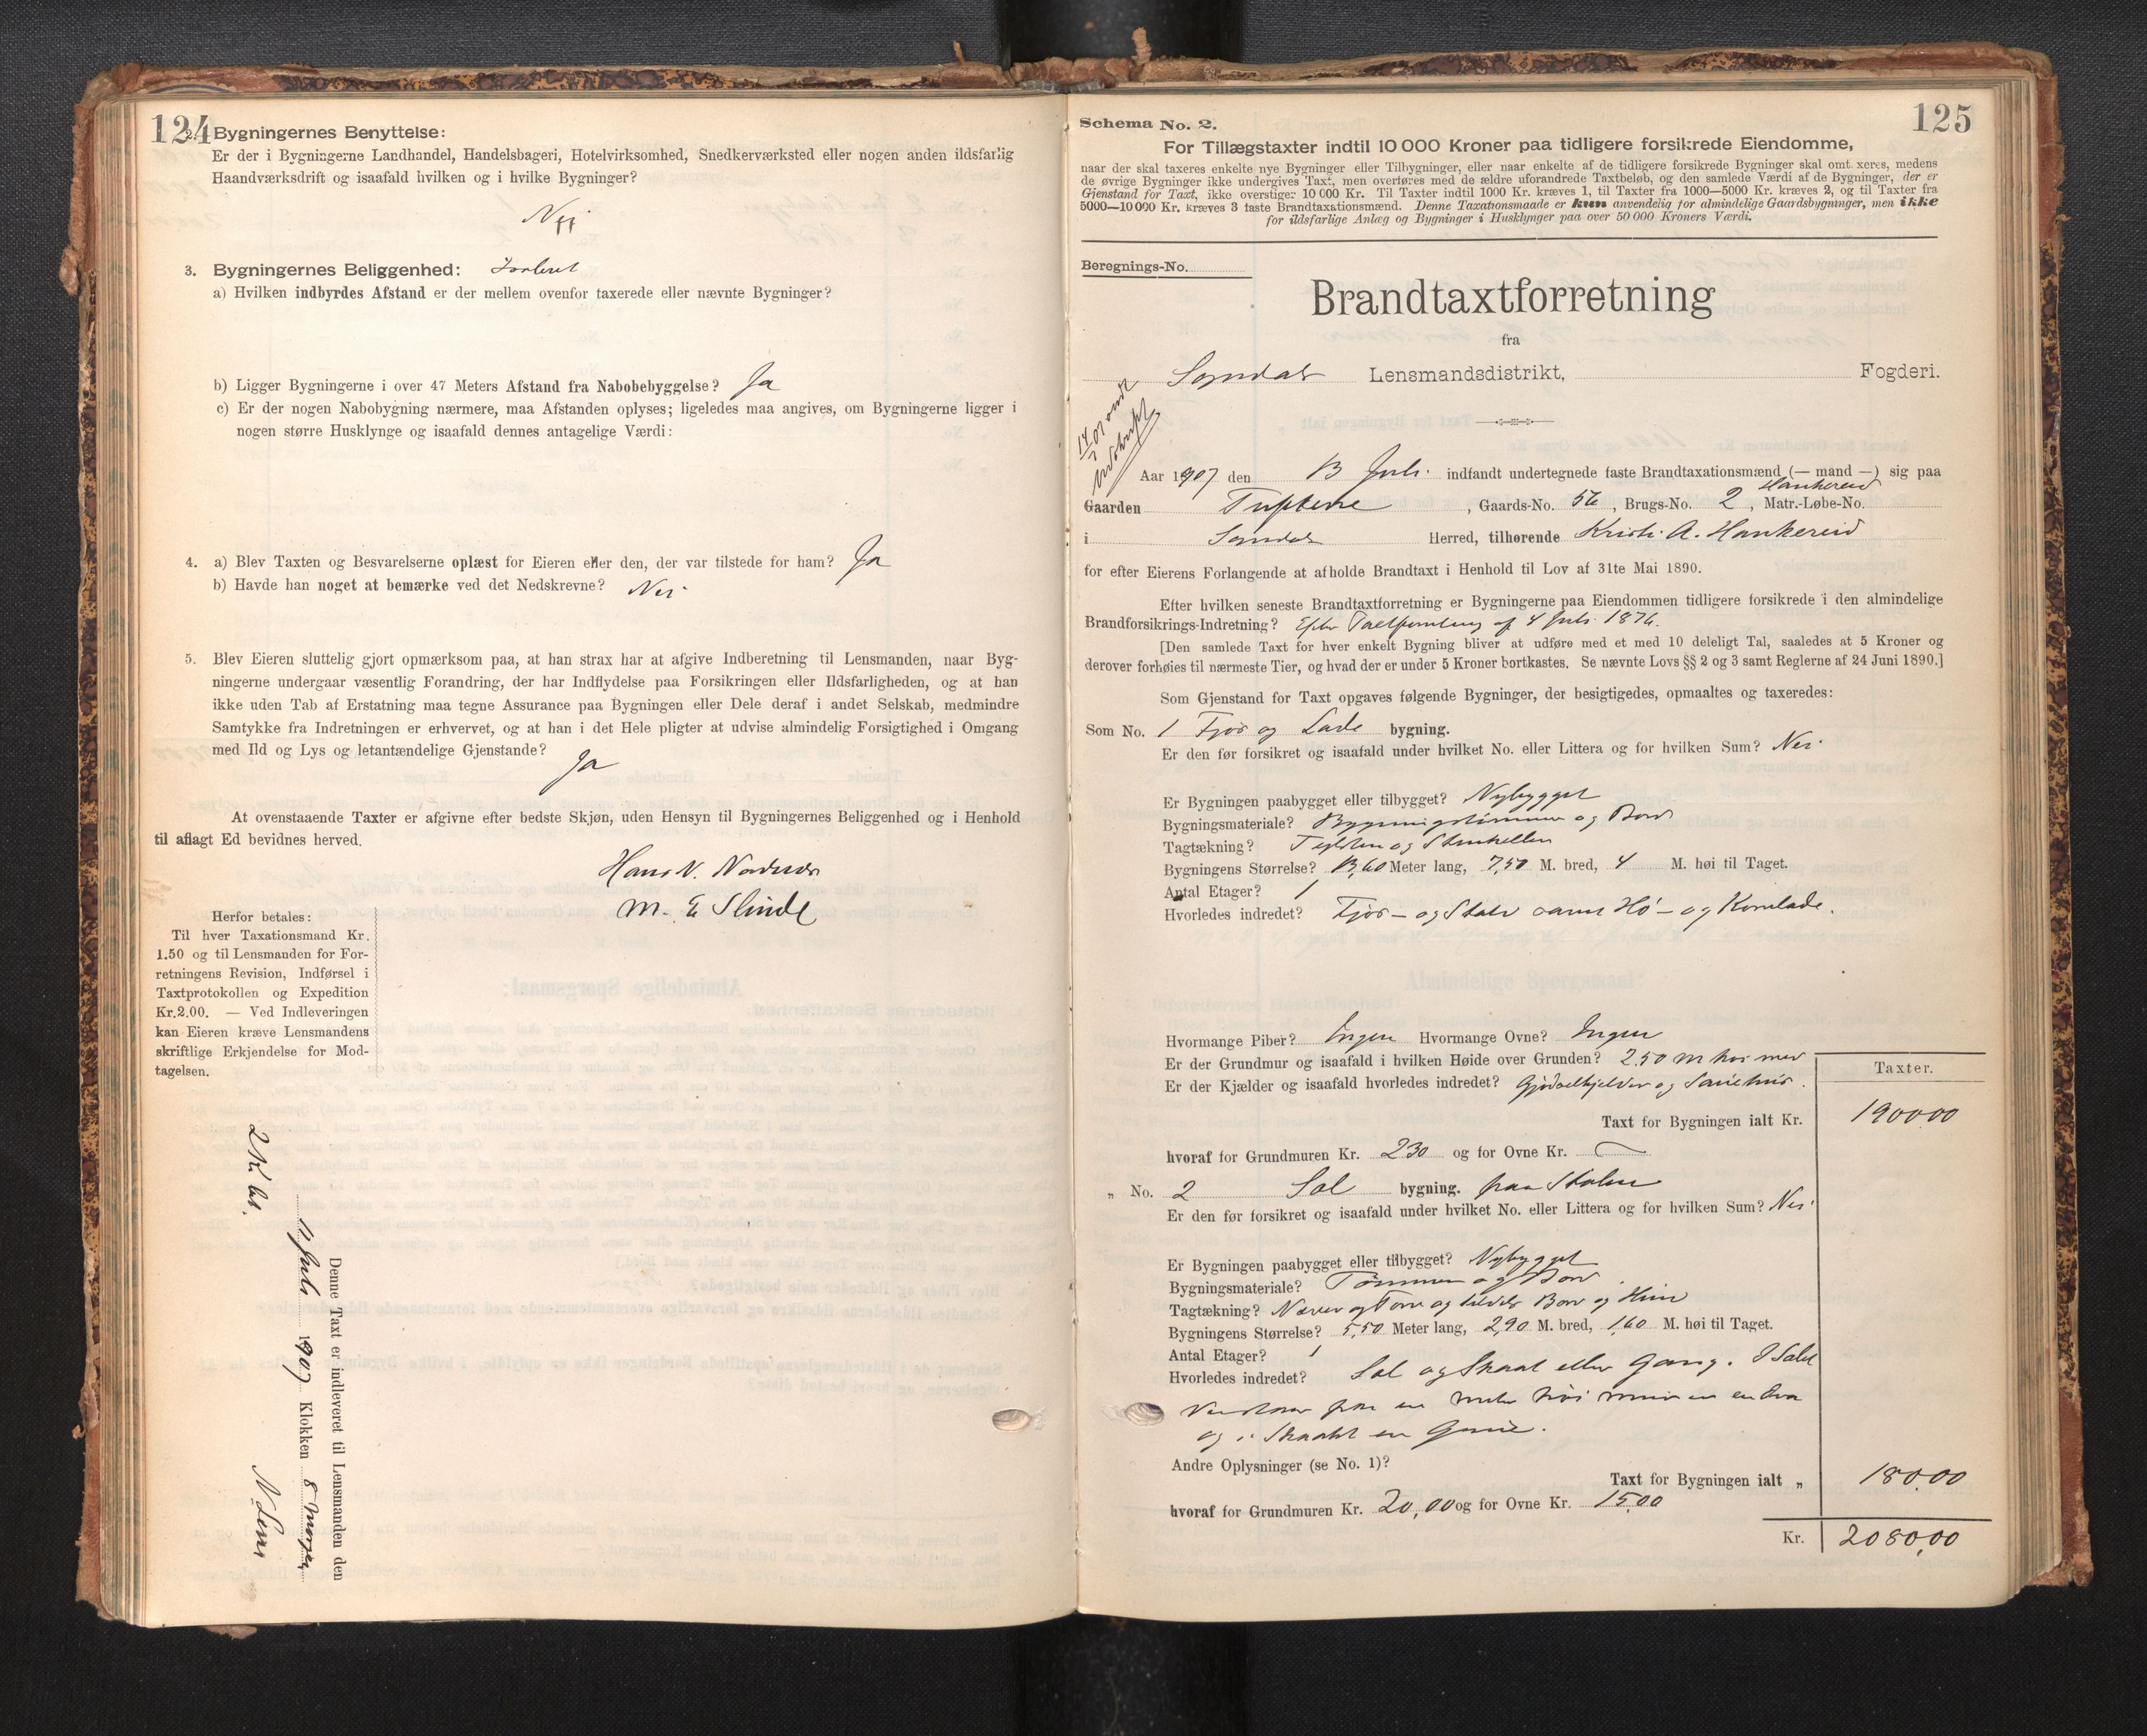 124
2. Bygningernes Benyttelse:
Er der i Bygningerne Landhandel, Handelsbageri, Hotelvirksomhed, Snedkerværksted eller nogen anden ildsfarlig
Haandværksdrift og isaafald hvilken og i hvilke Bygninger?
Nei
3. Bygningernes Beliggenhed: Isoleret
a) Hvilken indbyrdes Afstand er der mellem ovenfor taxerede eller nævnte Bygninger?
b) Ligger Bygningerne i over 47 Meters Afstand fra Nabobebyggelse? Ja
c) Er der nogen Nabobygning nærmere, maa Afstanden oplyses; ligeledes maa angives, om Bygningerne ligger i
nogen større Husklynge og isaafald dennes antagelige Værdi:
4. a) Blev Taxten og Besvarelserne oplæst for Eieren eller den, der var tilstede for ham? Ja
b) Havde han noget at bemærke ved det Nedskrevne? Nei
5. Blev Eieren sluttelig gjort opmærksom paa, at han strax har at afgive Indberetning til Lensmanden, naar Byg-
ningerne undergaar væsentlig Forandring, der har Indflydelse paa Forsikringen eller Ildsfarligheden, og at han
ikke uden Tab af Erstatning maa tegne Assurance paa Bygningen eller Dele deraf i andet Selskab, medmindre
Samtykke fra Indretningen er erhvervet, og at han i det Hele pligter at udvise almindelig Forsigtighed i Omgang
med Ild og Lys og letantændelige Gjenstande?
Ja
At ovenstaaende Taxter er afgivne efter bedste Skjøn, uden Hensyn til Bygningernes Beliggenhed og i Henhold
til aflagt Ed bevidnes herved.
Hans N.
M. E Slinde
Herfor betales:
Til hver Taxationsmand Kr.
1.50 og til Lensmanden for For-
retningens Revision, Indførsel i
Taxtprotokollen og Expedition
Kr. 2.00. — Ved Indleveringen
kan Eieren kræve Lensmandens
skriftlige Erkjendelse for Mod-
tagelsen.
Denne Taxt er indleveret til Lensmanden den
Juli 1907 Klokken 8
125
Schema No. 2.
For Tillægstaxter indtil 10 000 Kroner paa tidligere forsikrede Eiendomme,
naar der skal taxeres enkelte nye Bygninger eller Tilbygninger, eller naar enkelte af de tidligere forsikrede Bygninger skal omt.xeres, medens
de øvrige Bygninger ikke undergives Taxt, men overføres med de ældre uforandrede Taxtbeløb, og den samlede Værdi af de Bygninger, der er
Gjenstand for Taxt, ikke overstiger 10 000 Kr. Til Taxter indtil 1000 Kr. kræves 1, til Taxter fra 1000—5000 Kr. kræves 2, og til Taxter fra
5000—10 000 Kr. kræves 3 faste Brandtaxationsmænd. Denne Taxationsmaade er kun anvendelig for almindelige Gaardsbygninger, men ikke
for ildsfarlige Anlæg og Bygninger i Husklynger paa over 50 000 Kroners Værdi.
Beregnings-No.
Brandtaxtforretning
fra
Sogndals Lensmandsdistrikt, Fogderi.
Aar 1907 den 13 Juli indfandt undertegnede faste Brandtaxationsmænd (— mand —) sig paa
Hankereid
Gaarden Tuftene, Gaards-No. 56, Brugs-No. 2, Matr.-Løbe-No.
i Sogndal Herred, tilhørende Kristi A. Hankereid
for efter Eierens Forlangende at afholde Brandtaxt i Henhold til Lov af 31te Mai 1890.
Efter hvilken seneste Brandtaxtforretning er Bygningerne paa Eiendommen tidligere forsikrede i den almindelige
Brandforsikrings-Indretning? Efter Taxtforretning af 4 Juli 1876.
[Den samlede Taxt for hver enkelt Bygning bliver at udføre med et med 10 deleligt Tal, saaledes at 5 Kroner og
derover forhøies til nærmeste Tier, og hvad der er under 5 Kroner bortkastes. Se nævnte Lovs §§ 2 og 3 samt Reglerne af 24 Juni 1890.]
Som Gjenstand for Taxt opgaves følgende Bygninger, der besigtigedes, opmaaltes og taxeredes:
Som No. 1 Fjøs og Lade bygning.
Er den før forsikret og isaafald under hvilket No. eller Littera og for hvilken Sum? Nei
Er Bygningen paabygget eller tilbygget? Nybygget
Bygningsmateriale? Bygningstømmer og Bord
Tagtækning? Teglsten og Stenheller
Bygningens Størrelse? 13,60 Meter lang, 7,50 M. bred, 4 M. høi til Taget.
Antal Etager? 1
Hvorledes indredet? Fjøs- og Stald samt Hø- og Kornlade.
Hvormange Piber? Ingen Hvormange Ovne? Ingen
Er der Grundmur og isaafald i hvilken Høide over Grunden? 2,50 m høi mur
Er der Kjælder og isaafald hvorledes indredet? Gjødselkjelder og Sauehus.
Taxter.
Taxt for Bygningen ialt Kr. 1900,00
hvoraf for Grundmuren Kr. 230 og for Ovne Kr.
„ No. 2 Sel bygning. paa Stølen
Er den før forsikret og isaafald under hvilket No. eller Littera og for hvilken Sum? Nei
Er Bygningen paabygget eller tilbygget? Nybygget
Bygningsmateriale? Tømmer og Bord
Tagtækning? Næver og Torv og tildels Bord og Heller
Bygningens Størrelse? 5,50 Meter lang, 2,90 M. bred, 1,60 M. høi til Taget.
Antal Etager? 1
Hvorledes indredet? Sel og Skaat eller Gang. I Selet
paa en meter høi mur er en
og i Skaatet en Grue.
Andre Oplysninger (se No. 1)?
Taxt for Bygningen ialt „ 180,00
hvoraf for Grundmuren Kr. 20,00 og for Ovne Kr. 15,00
Kr. 2080,00